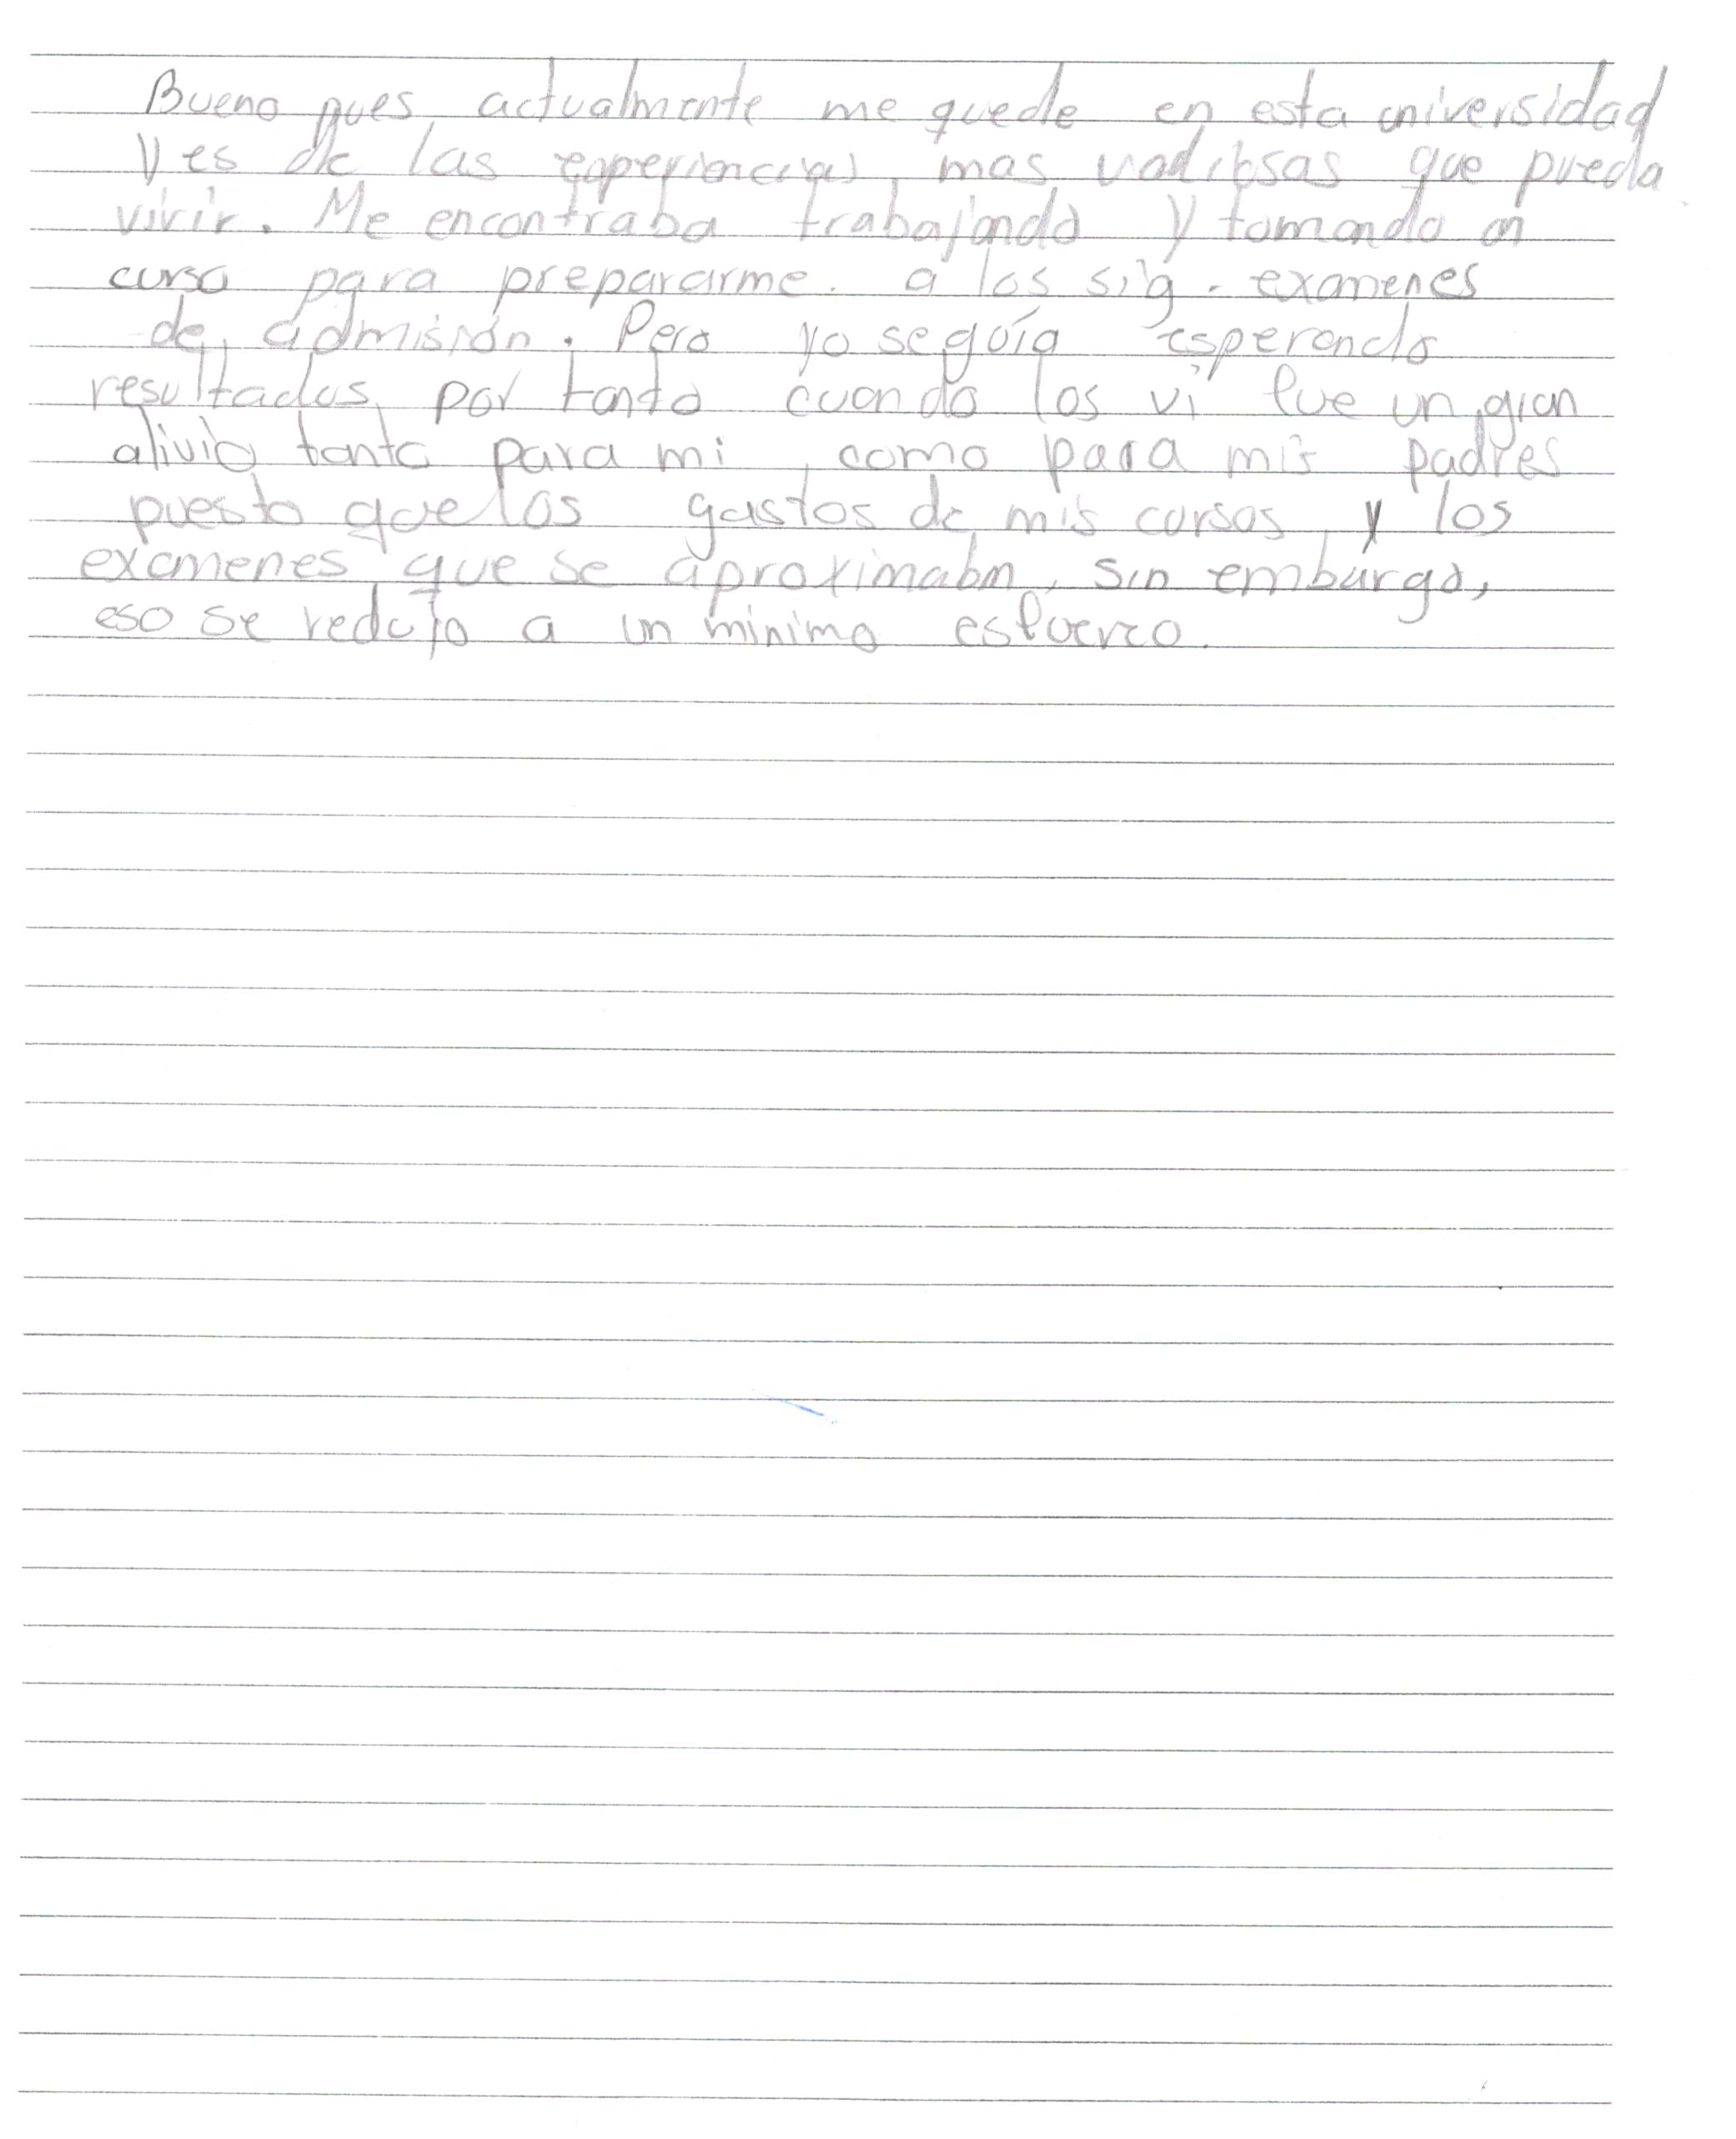 Bueno pues actualmente me quede en esta universidad
y es de las experiencias mas valiosas que pueda
vivir. Me encontraba trabajando y tomando un
curso para prepararme a los sig. examenes
de admisión. Pero yo seguía esperando
resultados, por tanto cuando los vi fue un gran
alivio tanto para mi, como para mis padres
puesto que los gastos de mis cursos y los
examenes que se aproximabn, sin embargo,
eso se redujo a un minimo esfuerzo.